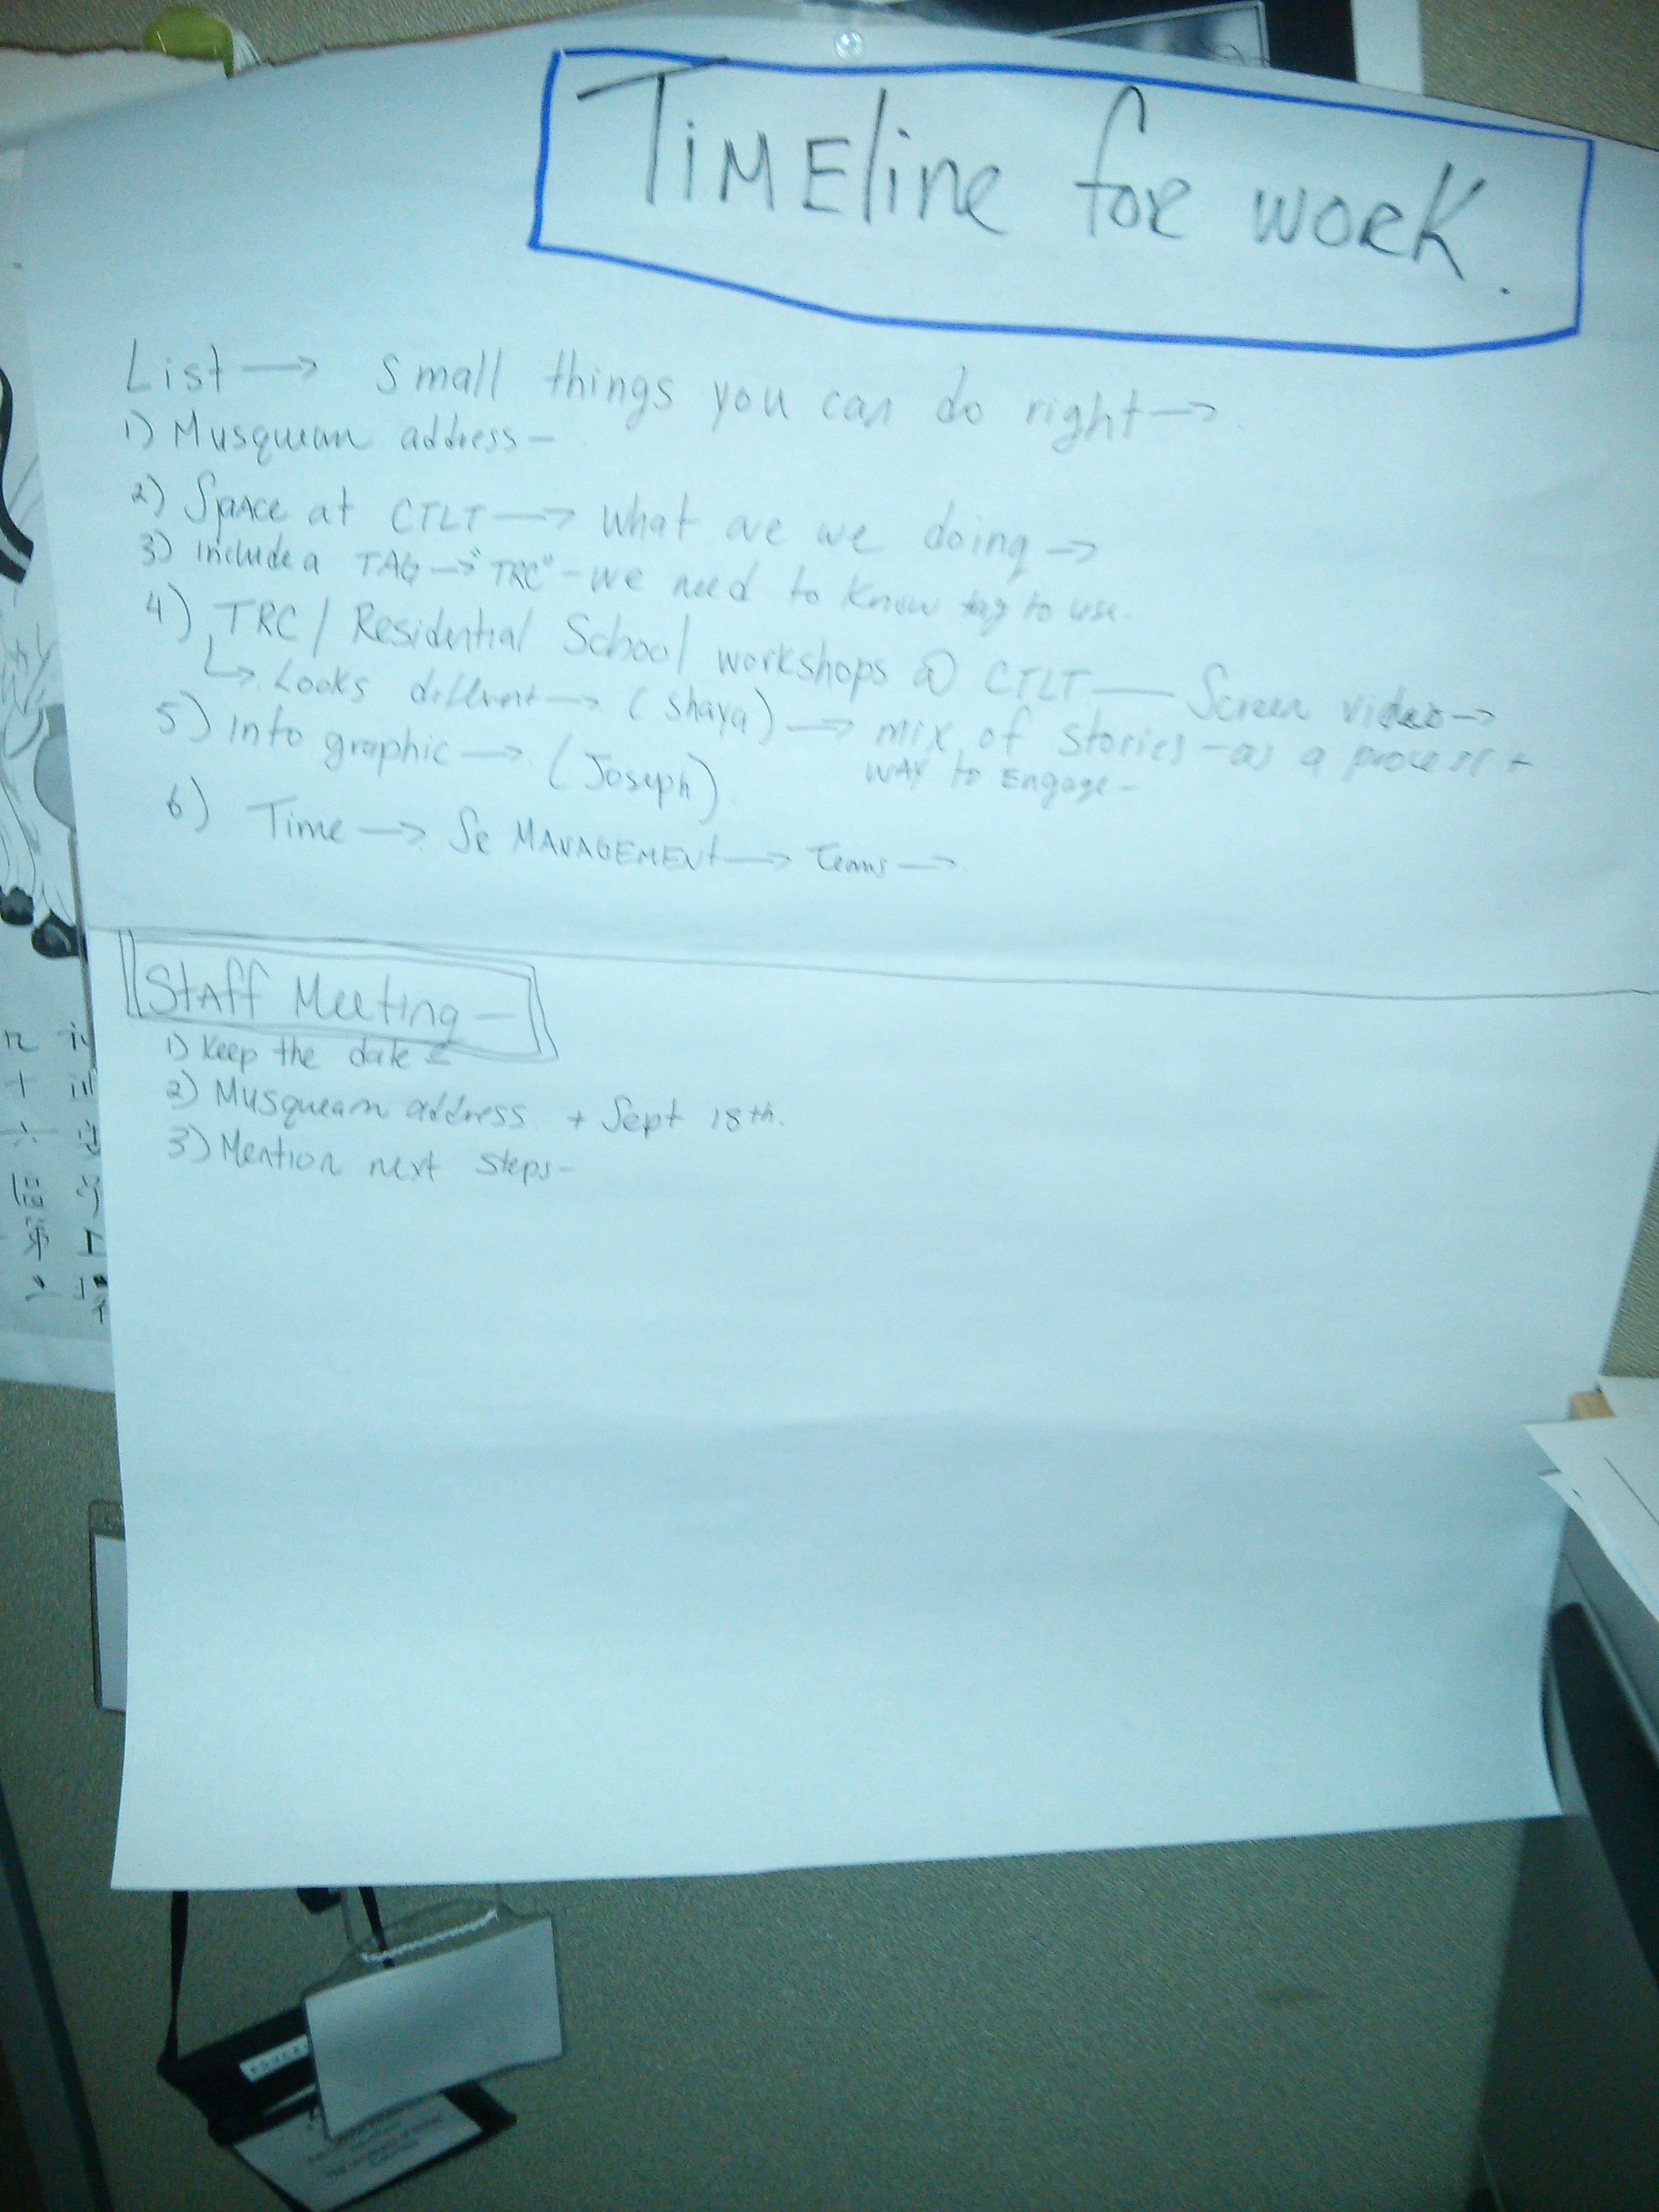 TiMEline for work.
List → Small things you can do right →
1) Musqueam address –
2) Space at CTLT → What are we doing →
3) include a TAG → "TRC" – we need to know tag to use.
4) TRC / Residential School workshops @ CTLT — Screen video →
↳ Looks different → (Shaya) → mix of stories – as a process +
WAY to Engage –
5) Info graphic → (Joseph)
6) Time → SR MANAGEMENt → Teams →
StAff Meeting –
1) Keep the date
2) Musqueam address + Sept 18th.
3) Mention next steps –